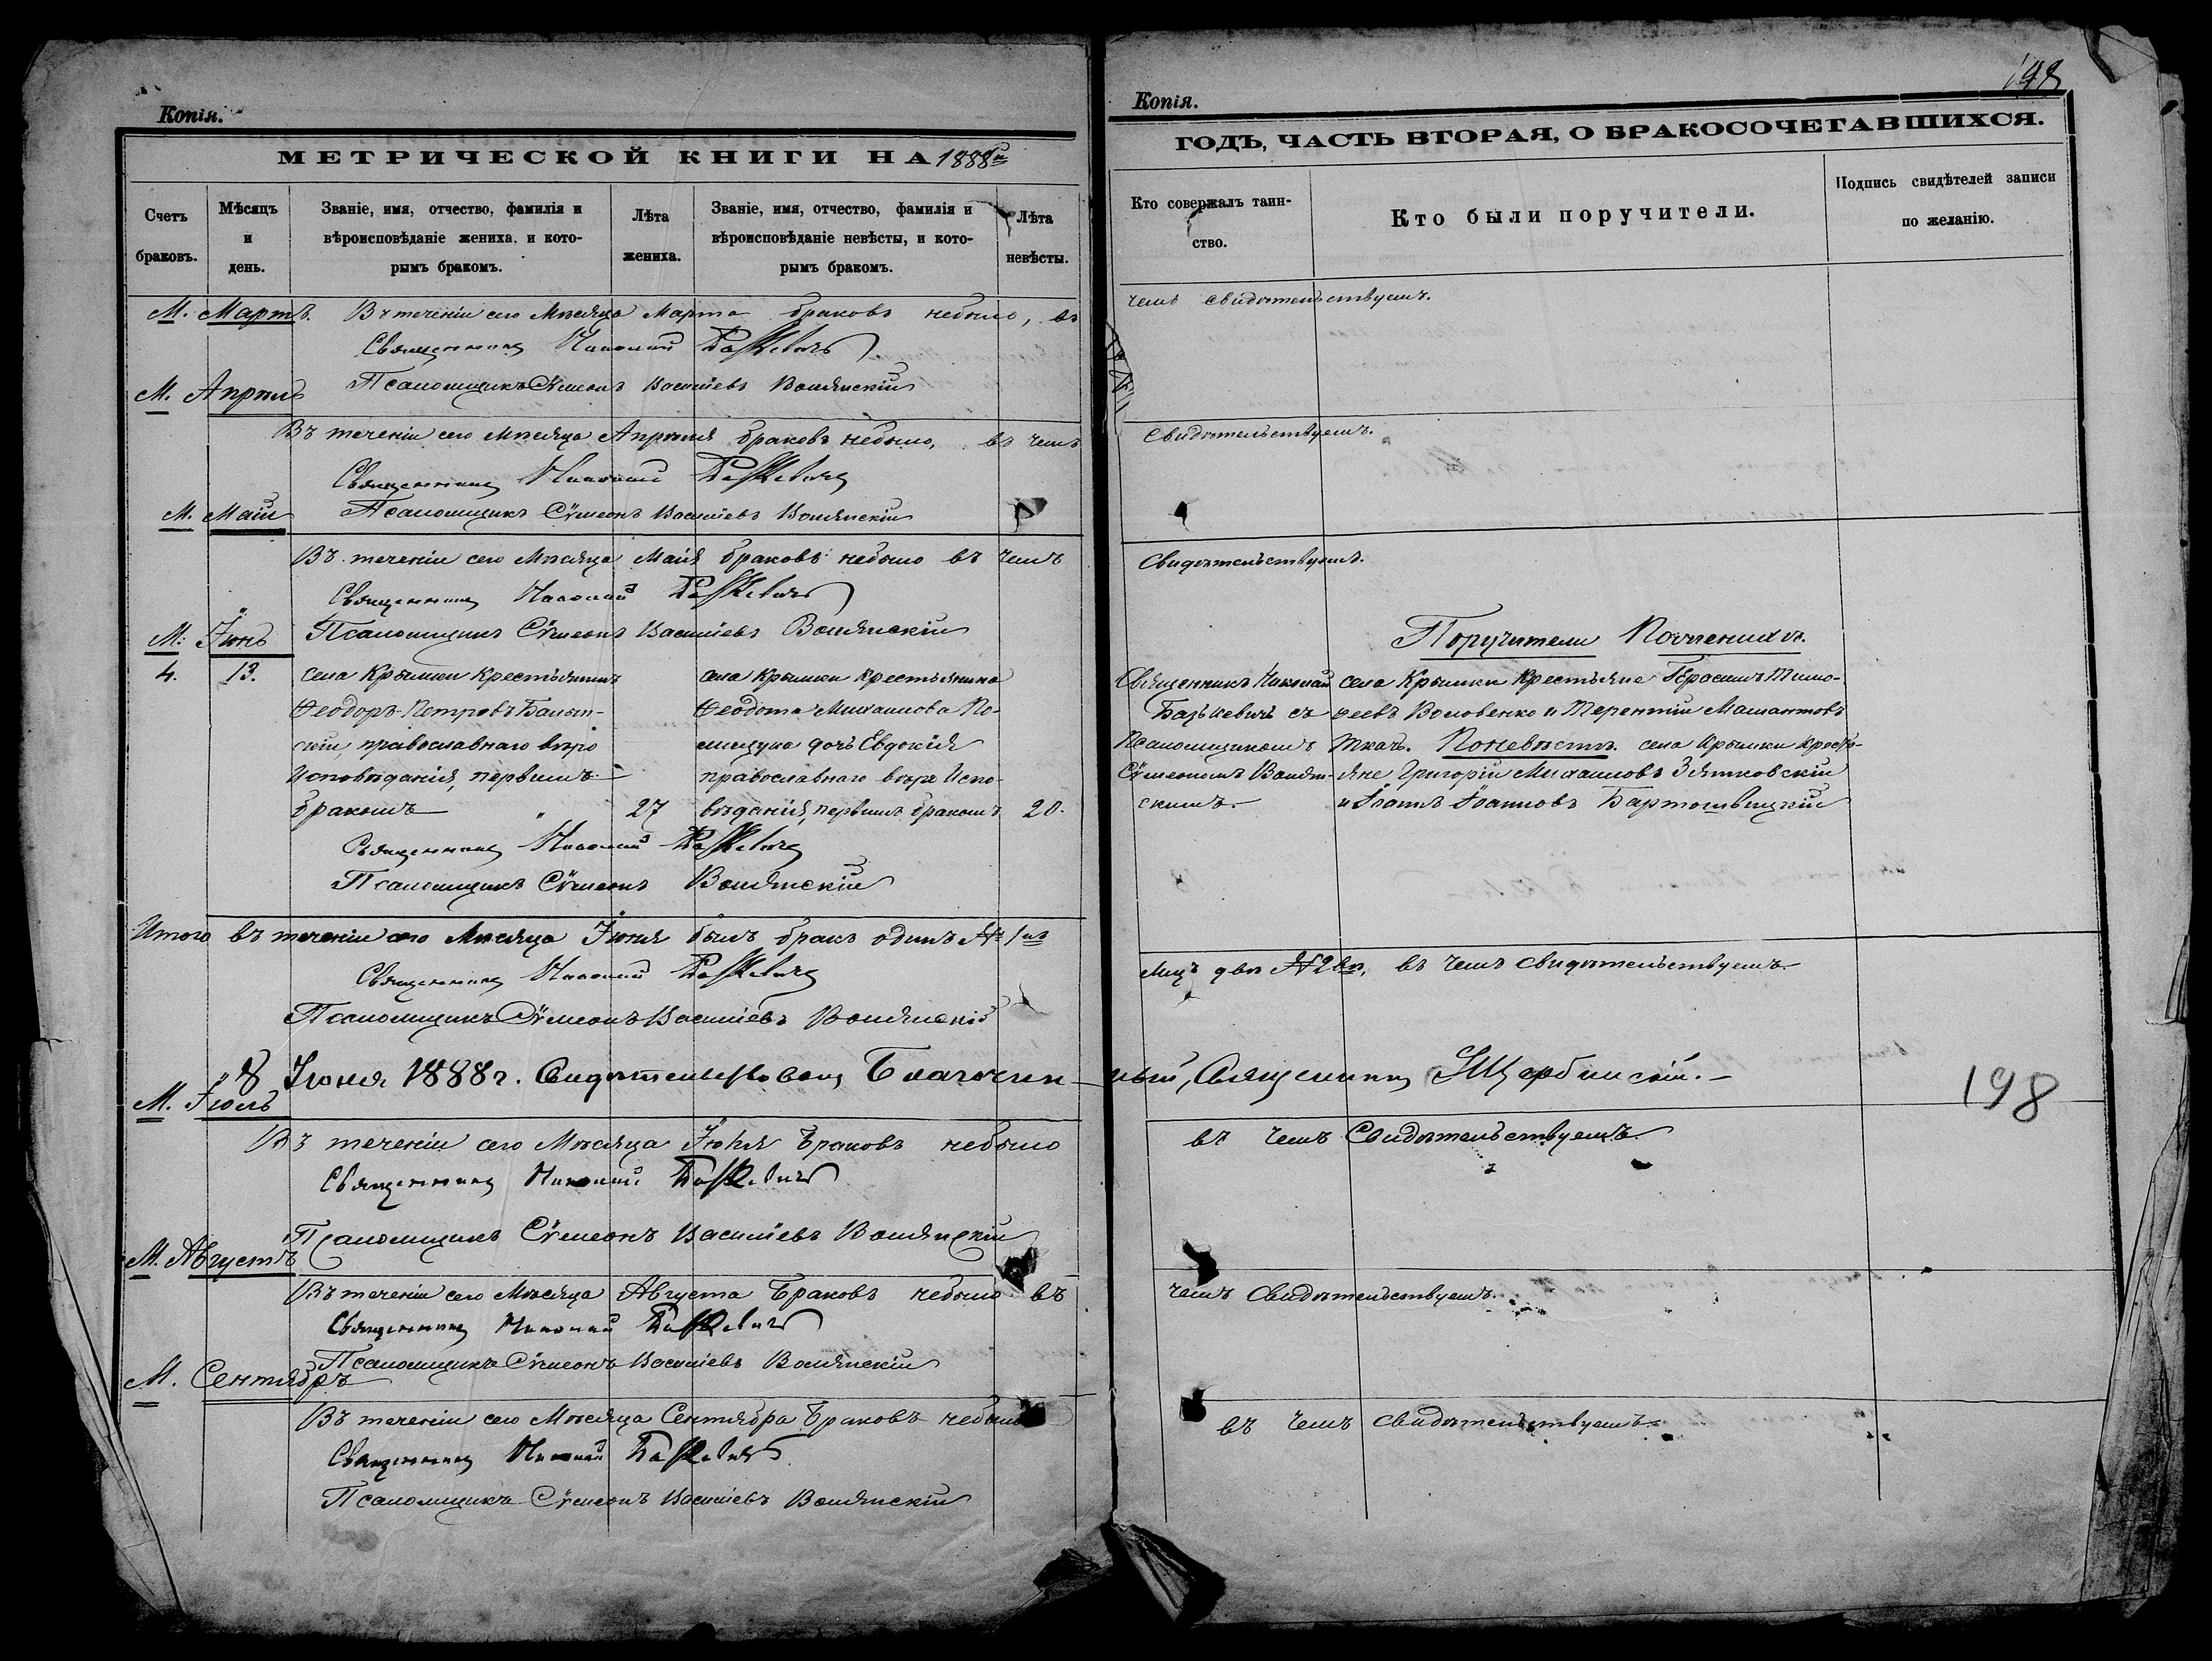 Копія.
МЕТРИЧЕСКОЙ КНИГИ НА 1888й
Счетъ браковъ.
Мѣсяцъ и день.
Званіе, имя, отчество, фамилія и вѣроисповѣданіе жениха, и которымъ бракомъ.
Лѣта жениха.
Званіе, имя, отчество, фамилія и вѣроисповѣданіе невѣсты, и которымъ бракомъ.
Лѣта невѣсты.
М. Мартъ. Въ теченіи сего Мѣсяца Марта браковъ небыло, въ
Священникъ Николай
Псаломщикъ Сѵмеонъ Василіевъ
М. Апрѣль
Въ теченіи сего Мѣсяца Апрѣля браковъ небыло, въ чемъ
Священникъ Николай
Псаломщикъ Сѵмеонъ Василіевъ
М. Маій
Въ теченіи сего Мѣсяца Маія браковъ небыло въ чемъ
Священникъ Николай
Псаломщикъ Сѵмеонъ Василіевъ
М. Іюнь
4. 13. села Крымки Крестьянинъ
Ѳеодоръ Петровъ
православнаго вѣро
Исповѣданія, первымъ
бракомъ 27
села Крымки Крестьянина
Ѳеодота Михаилова По-
лищука дочь Евдокія
православнаго вѣро Испо-
вѣданія, первымъ бракомъ 20.
Священникъ Николай
Псаломщикъ Сѵмеонъ
Итого въ теченіи сего Мѣсяца Іюня былъ бракъ одинъ № 1нъ
Священникъ Николай
Псаломщикъ Сѵмеонъ Василіевъ
8 Іюня 1888 г. Свидѣтельствовалъ Благочин-
М. Іюль
Въ теченіи сего Мѣсяца Іюля Браковъ небыло
Священникъ Николай
Псаломщикъ Сѵмеонъ Василіевъ
М. Августъ
Въ теченіи сего Мѣсяца Августа Браковъ небыло въ
Священникъ Николай
Псаломщикъ Сѵмеонъ Василіевъ
М. Сентябръ
Въ теченіи сего Мѣсяца Сентября Браковъ небыло
Священникъ Николай
Псаломщикъ Сѵмеонъ Василіевъ
198
Копія.
ГОДЪ, ЧАСТЬ ВТОРАЯ, О БРАКОСОЧЕТАВШИХСЯ.
Кто совержалъ таинство.
Кто были поручители.
Подпись свидѣтелей записи по желанію.
чемъ свидѣтельствуемъ.
свидѣтельствуемъ.
свидѣтельствуемъ.
Поручители По женихѣ.
Священникъ Николай
Базькевичъ съ
Псаломщикомъ
Сѵмеономъ
села Крымки Крестьяне Герасимъ Тимо-
ѳеевъ Воловенко и Терентій
Ткачъ. По невѣстѣ. села Крымки Кресть-
яне Григорій Михаиловъ Зятковскій
и Іоаннъ Іоанновъ
лицъ два № 2ва, въ чемъ свидѣтельствуемъ.
ный, Священникъ Щербинскій.
198
въ чемъ Свидѣтельствуемъ.
чемъ Свидѣтельствуемъ.
въ чемъ свидѣтельствуемъ.